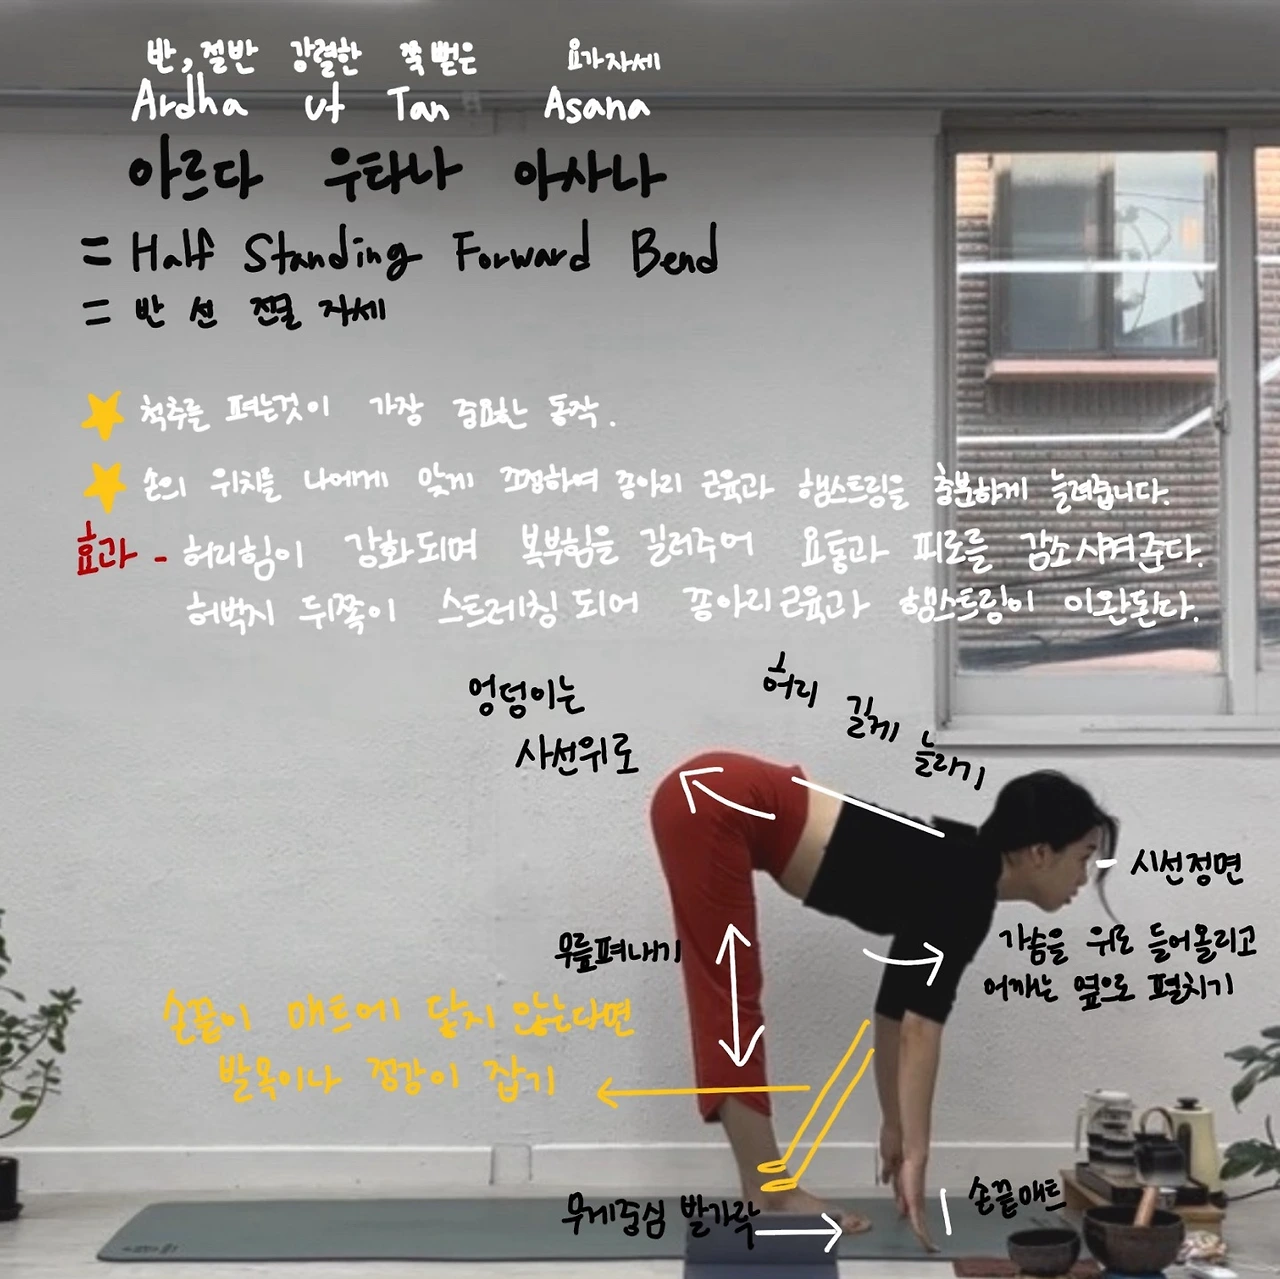 반, 절반 강렬한 쭉 뻗은 요가자세
Ardha ut Tan Asana
아르다 우타나 아사나
= Half Standing Forward Bend
= 반 선 전굴 자세
척추를 펴는것이 가장 중요한 동작.
손의 위치를 나에게 맞게 조절하여 종아리 근육과 햄스트링을 충분하게 늘려줍니다.
효과 - 허리힘이 강화되며 복부힘을 길러주어 요통과 피로를 감소시켜준다.
허벅지 뒤쪽이 스트레칭되어 종아리근육과 햄스트링이 이완된다.
엉덩이는
사선위로
허리 길게 늘리기
시선정면
가슴을 위로 들어올리고
어깨는 옆으로 펼치기
무릎펴내기
손끝이 매트에 닿지 않는다면
발목이나 정강이 잡기
무게중심 발가락
손끝매트